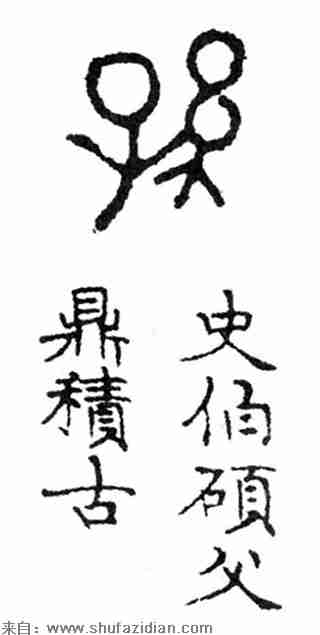 孫
史伯碩父
鼎積古
来自：www.shufazidian.com